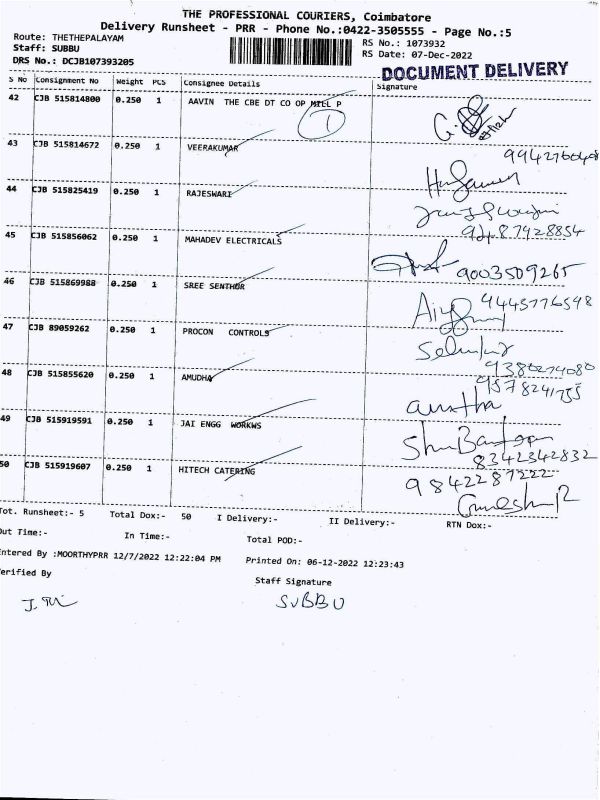 THE PROFESSIONAL COURIERS, Coimbatore
Delivery Runsheet - PRR - Phone No.:0422-3505555 - Page No.:5
Route: THETHEPALAYAM
RS No.: 1073932
Staff: SUBBU
RS Date: 07-Dec-2022
DRS No.: DCJB107393205
DOCUMENT DELIVERY
S No Consignment No Weight PCS Consignee Details Signature
42 CJB 515814800 0.250 1 AAVIN THE CBE DT CO OP MILL P
1
43 CJB 515814672 0.250 1 VEERAKUMAR
44 CJB 515825419 0.250 1 RAJESWARI
45 CJB 515856062 0.250 1 MAHADEV ELECTRICALS
9003509265
46 CJB 515869988 0.250 1 SREE SENTHOR
9445776598
47 CJB 89059262 0.250 1 PROCON CONTROLS
9380274080
48 CJB 515855620 0.250 1 AMUDHA
49 CJB 515919591 0.250 1 JAI ENGG WORKWS
8342342832
50 CJB 515919607 0.250 1 HITECH CATERING
9842287222
Tot. Runsheet:- 5 Total Dox:- 50 I Delivery:- II Delivery:- RTN Dox:-
Out Time:- In Time:- Total POD:-
Entered By :MOORTHYPRR 12/7/2022 12:22:04 PM Printed On: 06-12-2022 12:23:43
Verified By Staff Signature
SUBBU